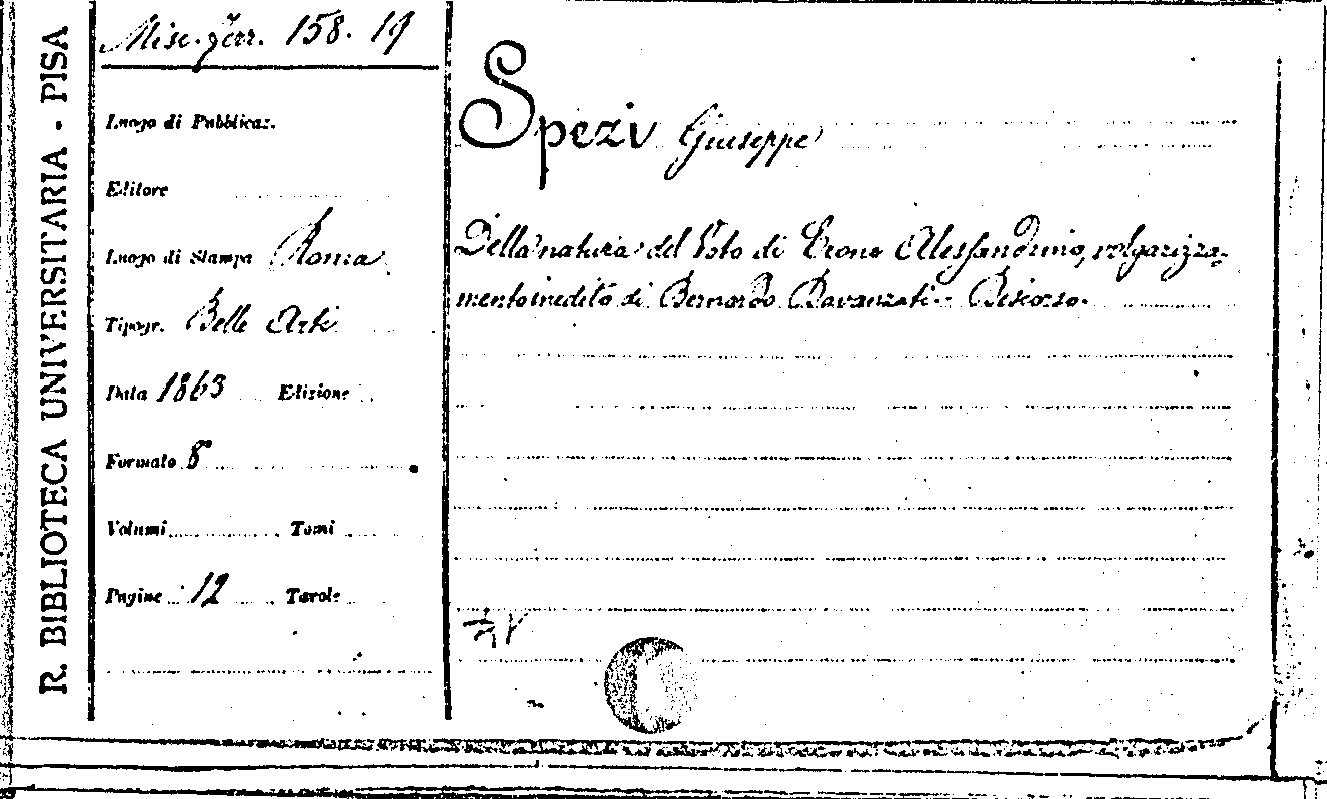 R. BIBLIOTECA UNIVERSITARIA - PISA
Misc. ferr. 158. 19
Luogo di Pubblicaz.
Editore
Luogo di Stampa Roma
Tipogr. Belle Arti
Data 1863 Edizione
Formato 8°
Volumi Tomi
Pagine 12 Tavole
Spezi Giuseppe
Della natura del Voto di Erone Alessandrino, volgarizza-
mento inedito di Bernardo Davanzati - Discorso.